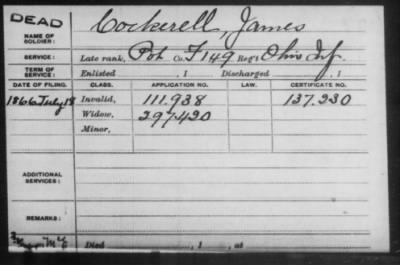 DEAD
NAME OF SOLDIER: Cockerell, James
SERVICE: Late rank, Pvt. Co. F 149 Reg't Ohio Inf.
TERM OF SERVICE: Enlisted , 1 Discharged , 1
DATE OF FILING. CLASS. APPLICATION NO. LAW. CERTIFICATE NO.
1866 July 18 Invalid, 111.938 137.230
Widow, 297.420
Minor,
ADDITIONAL SERVICES:
REMARKS:
Died , 1 , at